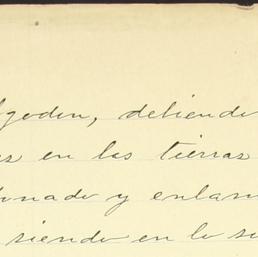 lgodon, debiendo
es en las tierras
donado y enlam
siendo en lo su